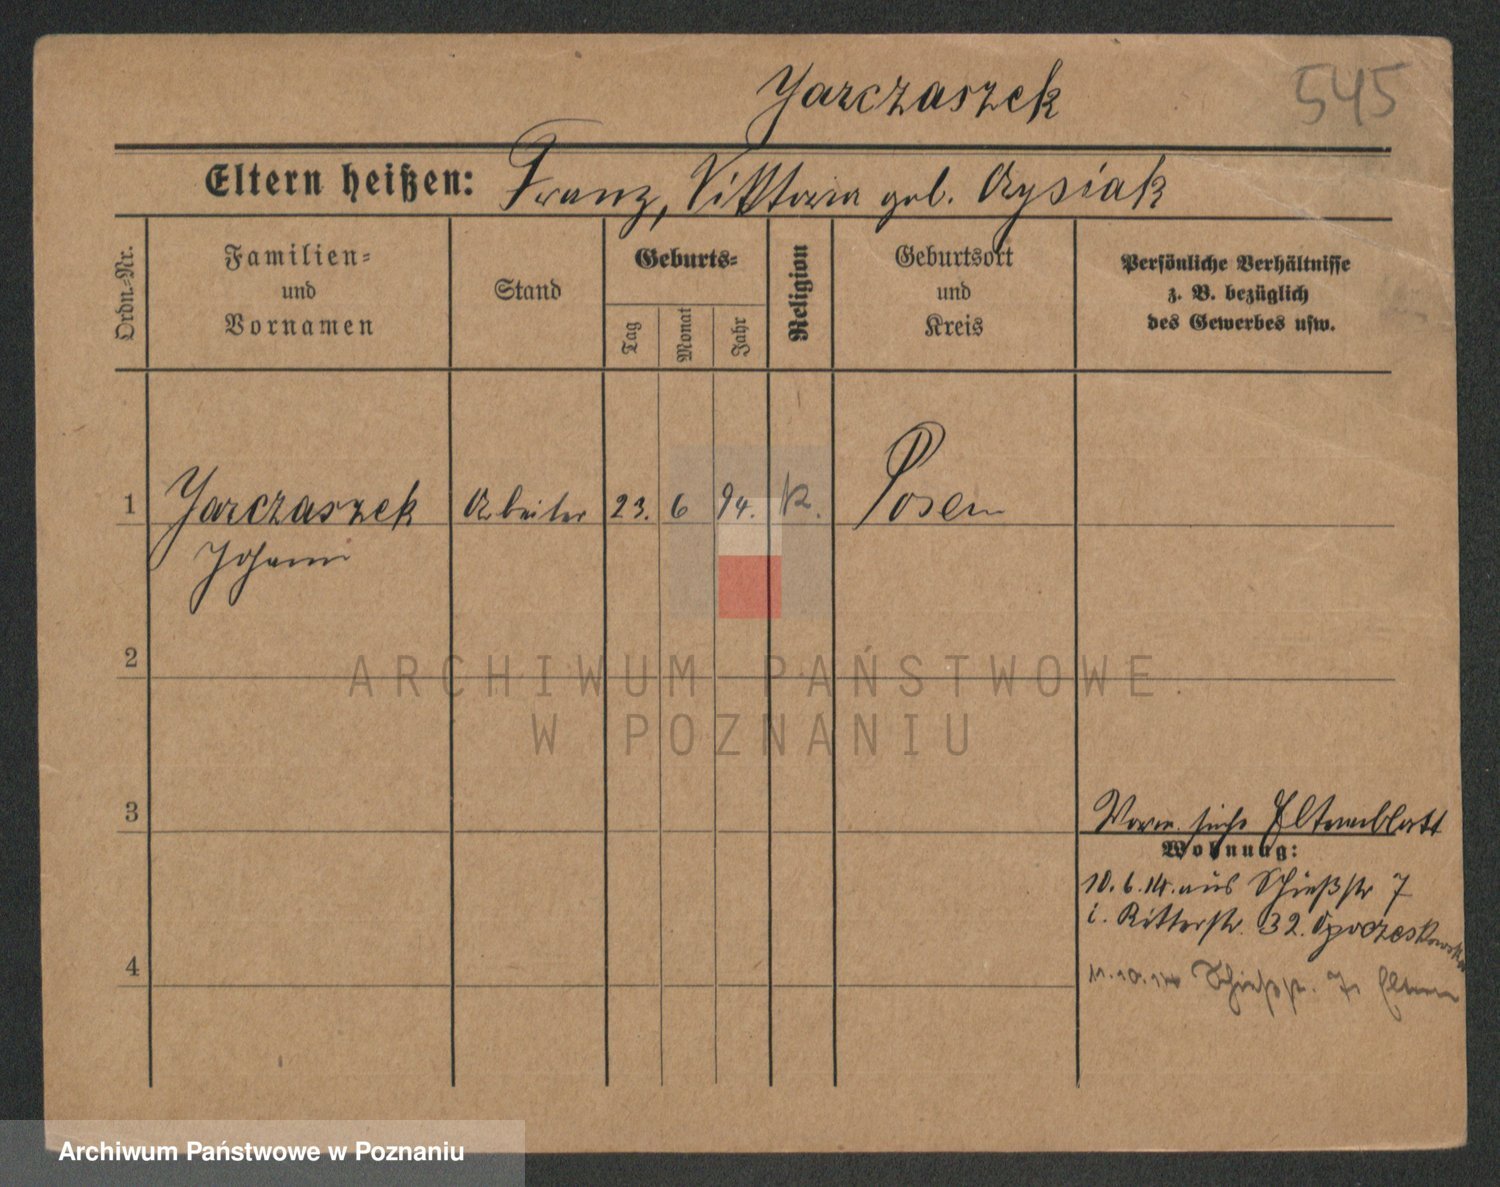 Jarczaszek
545
Eltern heißen: Franz, Viktoria geb. Rysiak
Ordn.-Nr.
Familien-
und
Vornamen
Stand
Geburts-
Tag
Monat
Jahr
Religion
Geburtsort
und
Kreis
Persönliche Verhältnisse
z. B. bezüglich
des Gewerbes usw.
1 Jarczaszek Arbeiter 23. 6 94. K. Posen
Johann
2
3
Vorm. siehe Elternblatt
Wohnung:
10.6.14. aus Schießstr 7
i. Ritterstr. 32.
4
Schießstr. 7 Eltern
ARCHIWUM PAŃSTWOWE
W POZNANIU
Archiwum Państwowe w Poznaniu